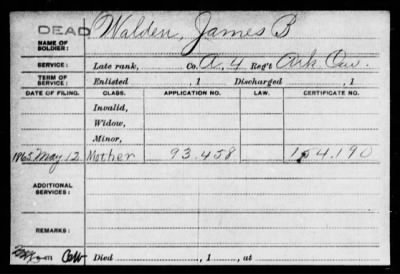 DEAD
NAME OF SOLDIER: Walden, James B
SERVICE: Late rank, Co. A, 4 Reg't Ark Cav.
TERM OF SERVICE: Enlisted , 1 Discharged , 1
DATE OF FILING. CLASS. APPLICATION NO. LAW. CERTIFICATE NO.
Invalid,
Widow,
Minor,
1865 May 12 Mother 93.458 154.190
ADDITIONAL SERVICES:
REMARKS:
Died , 1 , at